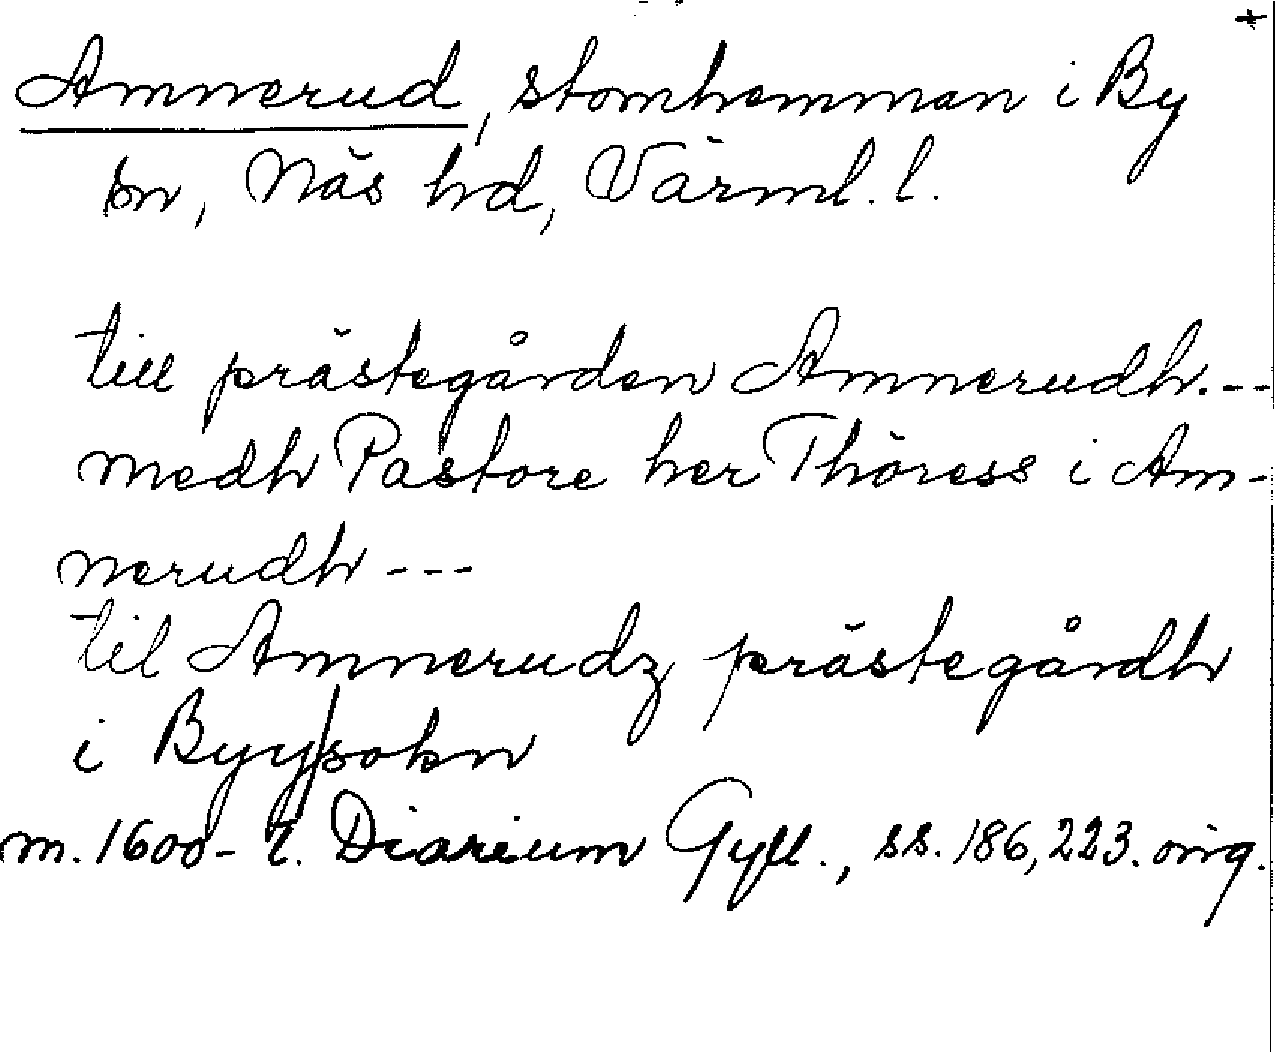 Amnerud, stomhemman i By
sn, Näs hd, Värml. l.
till prästegården Amnerudh. ---
medh Pastore her Thöress i Am-
nerudh ---
til Amnerudz prästegårdh
i Byy/sokn
m. 1600- t. Diarium Gyll., ss. 186, 223. orig.